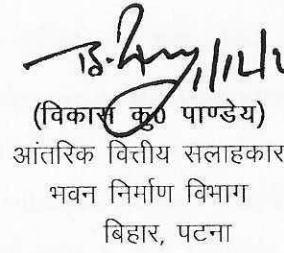 (विकास कु० पाण्डेय)
आंतरिक वित्तीय सलाहकार
भवन निर्माण विभाग
बिहार, पटना